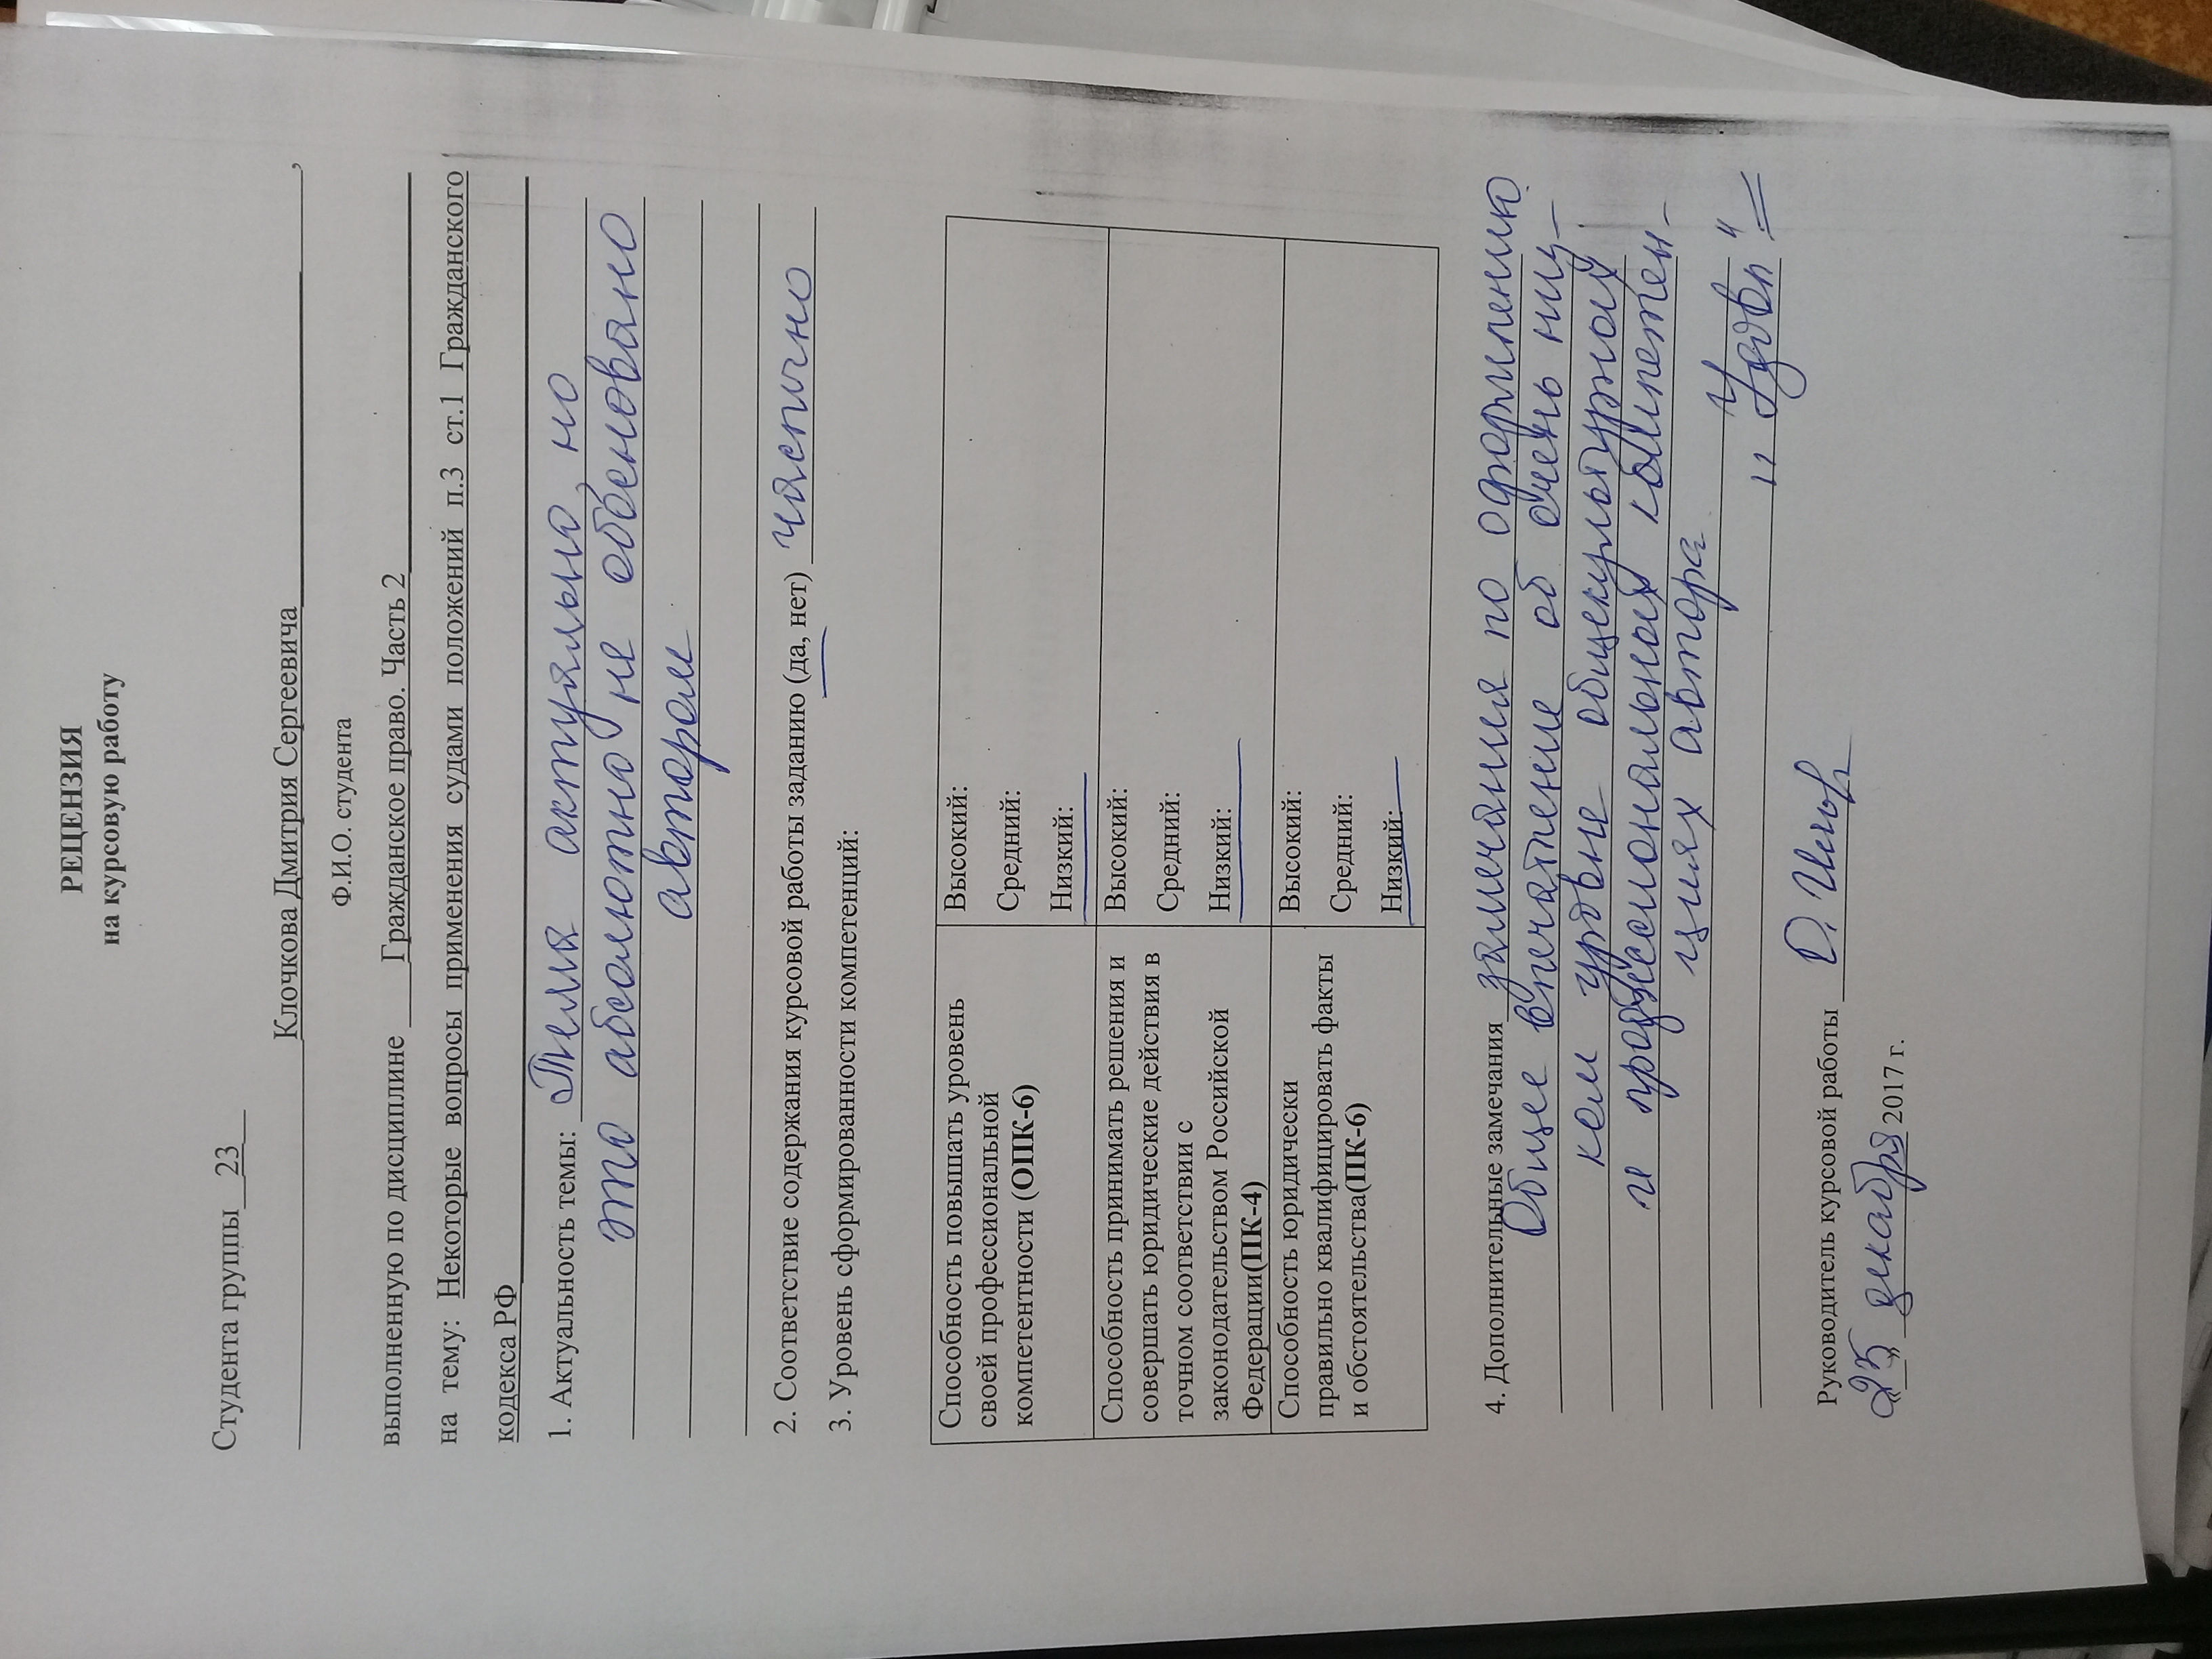 РЕЦЕНЗИЯ
на курсовую работу
Студента группы 23
Клочкова Дмитрия Сергеевича,
Ф.И.О. студента
выполненную по дисциплине Гражданское право. Часть 2
на тему: Некоторые вопросы применения судами положений п.3 ст.1 Гражданского
кодекса РФ
1. Актуальность темы: Тема актуальна, но
это абсолютно не обосновано
автором
2. Соответствие содержания курсовой работы заданию (да, нет) частично
3. Уровень сформированности компетенций:
Способность повышать уровень
своей профессиональной
компетентности (ОПК-6)
Высокий:
Средний:
Низкий:
Способность принимать решения и
совершать юридические действия в
точном соответствии с
законодательством Российской
Федерации(ПК-4)
Высокий:
Средний:
Низкий:
Способность юридически
правильно квалифицировать факты
и обстоятельства(ПК-6)
Высокий:
Средний:
Низкий:
4. Дополнительные замечания замечания по оформлению.
Общее впечатление об очень низ-
ком уровне общекультурных
и профессиональных компетен-
циях автора
"Удовл"
Руководитель курсовой работы
«25» декабря 2017 г.